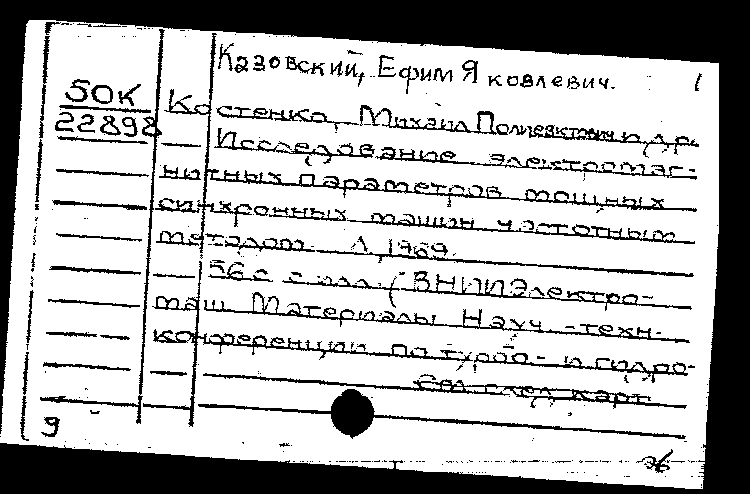 Казовский, Ефим Яковлевич. 1
50К
22898
Костенко, Михаил Полиевктович и др.
Исследование электромаг-
нитных параметров мощных
синхронных машин частотным
методом. Л, 1969.
56 с. с илл. (ВНИИЭлектро-
маш Материалы Науч.-техн.
конференции по турбо- и гидро-
См след карт
9